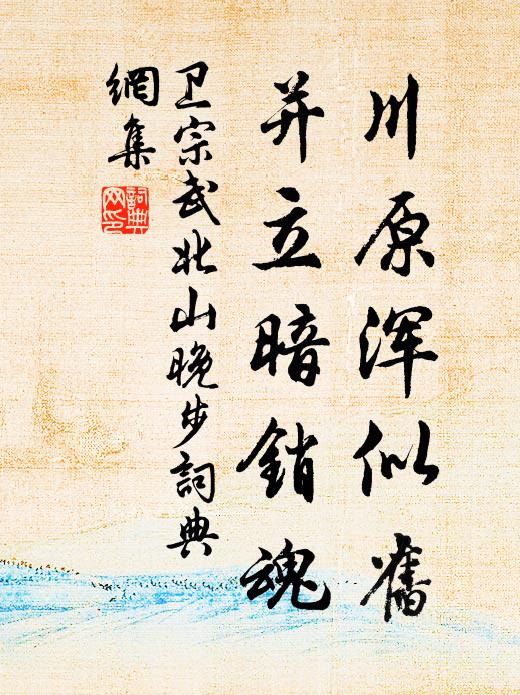 川原浑似舊
并立暗銷魂
卫宗武北山晚步詞典
網集
詞典
网印